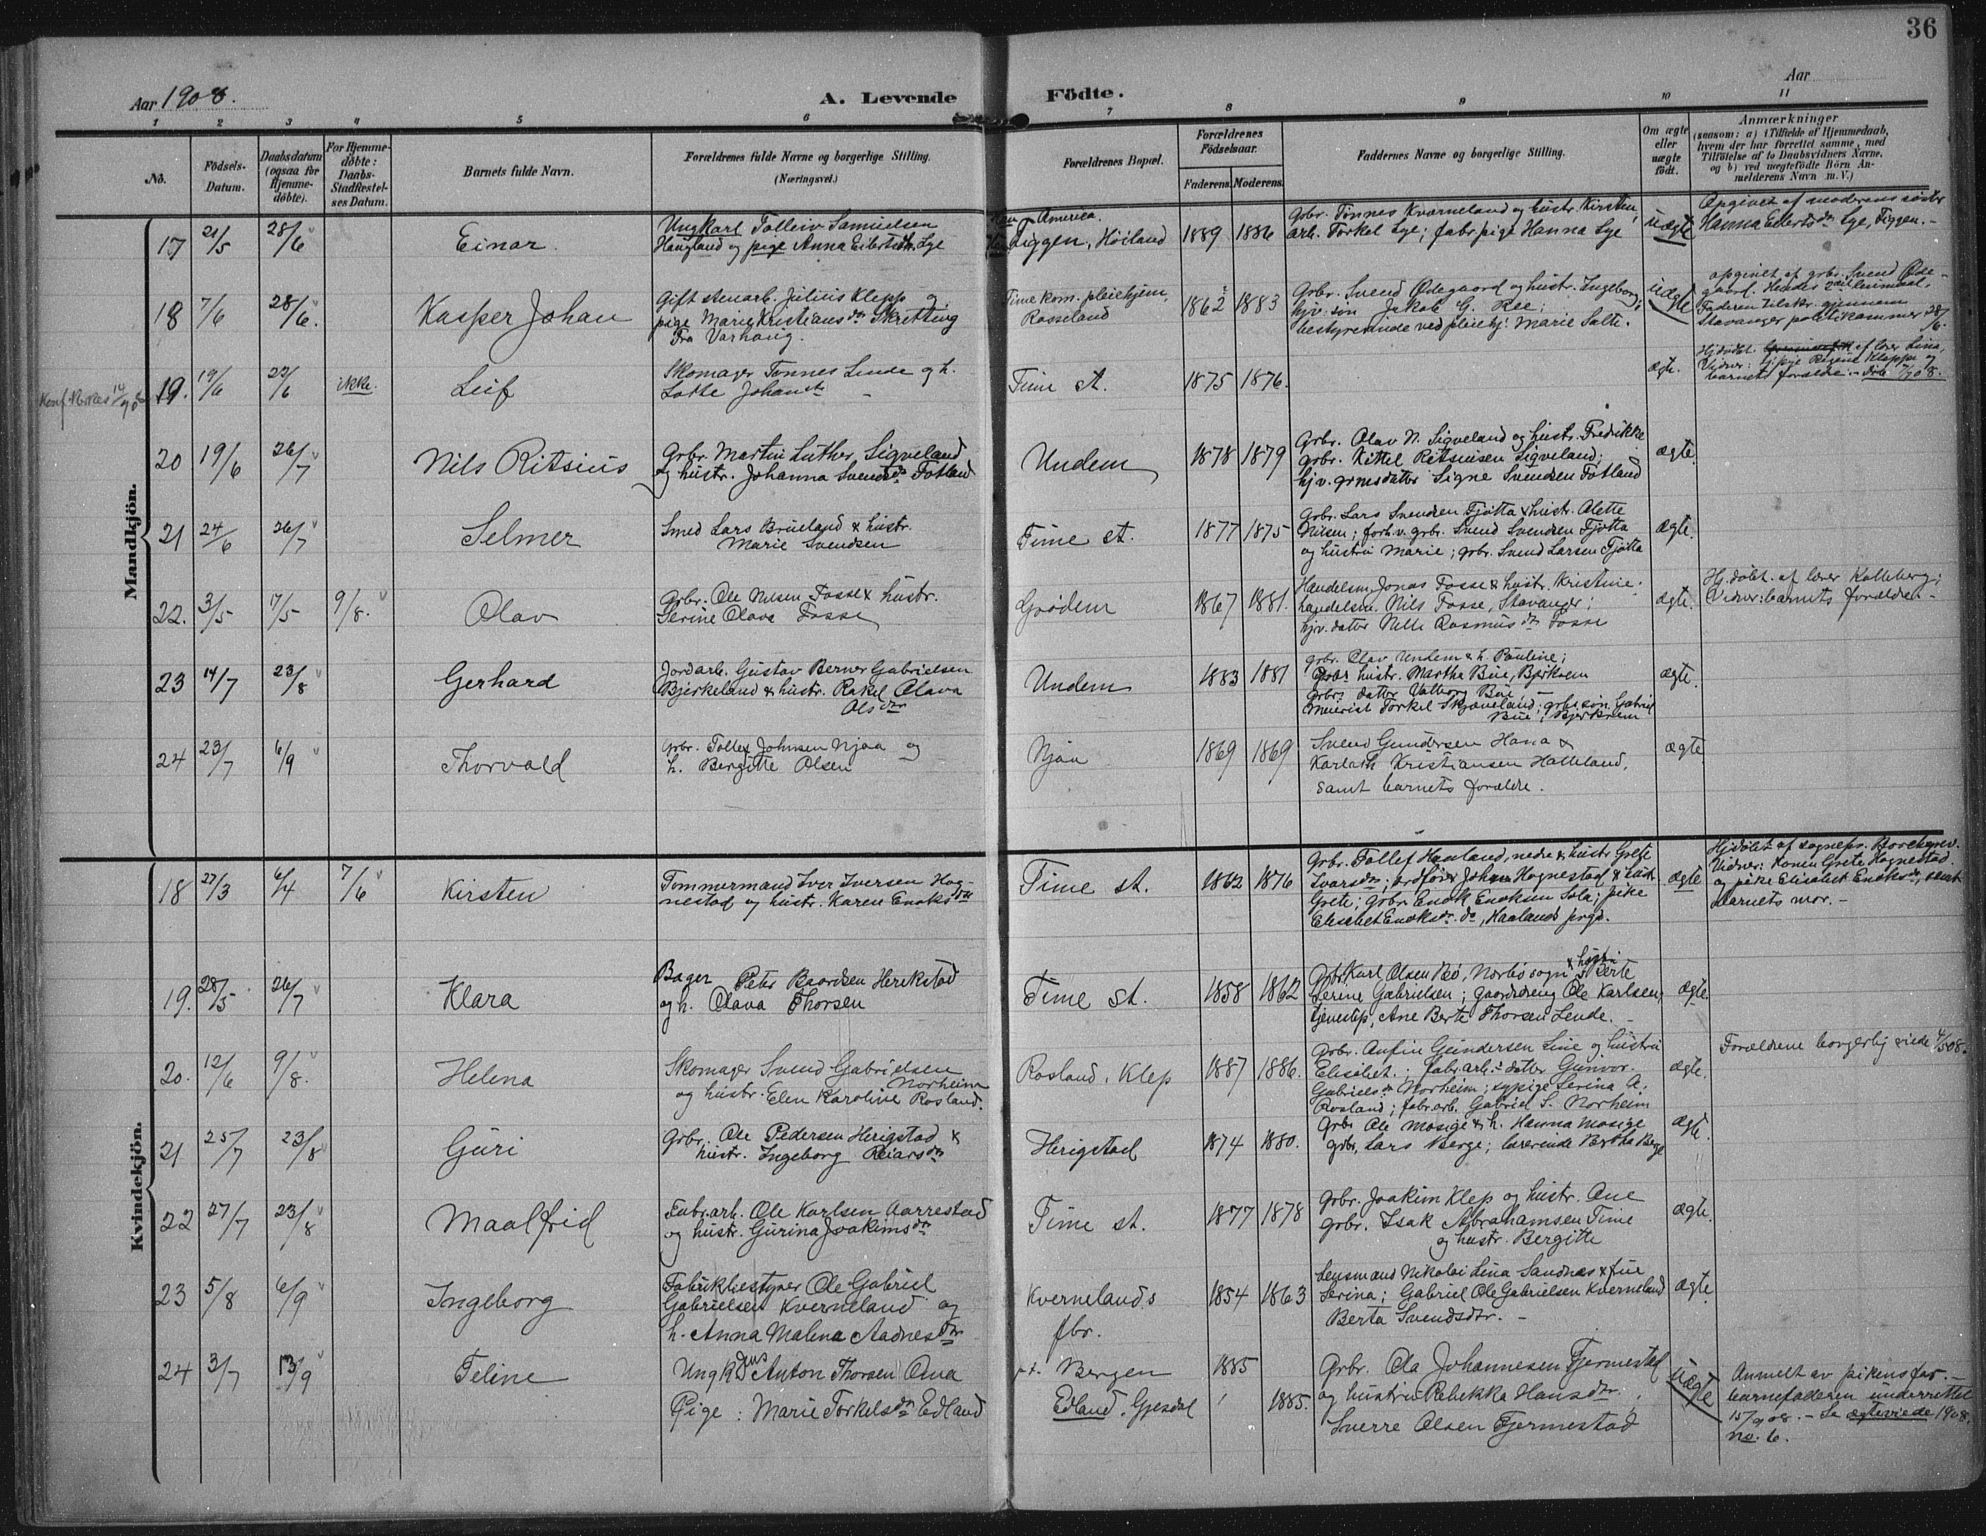 36
Aar 1908.
A. Levende Födte.
Aar
1 2 3 4 5 6 7 8 9 10 11
No.
Födsels-
Datum.
Daabsdatum
(ogsaa for
Hjemme-
døbte).
For Hjemme-
døbte:
Daabs-
Stadfæstel-
ses Datum.
Barnets fulde Navn.
Forældrenes fulde Navne og borgerlige Stilling.
(Næringsvei.)
Forældrenes Bopæl.
Forældrenes
Födselsaar.
Faderens. Moderens.
Faddernes Navne og borgerlige Stilling.
Om ægte
eller
uægte
født.
Anmærkninger
(saasom: a) i Tilfælde af Hjemmedaab,
hvem der har forrettet samme, med
Tilföielse af to Daabsvidners Navne,
og b) ved uægtefödte Börn An-
melderens Navn m. V.)
Mandkjön.
17 21/5 28/6 Einar.
Ungkarl Tolleiv Samuelsen
Haugland og pige Anna Eilertsdtr Lye
Han Amerika.
Figgen, Høiland
1889 1886
Grbr. Tønnes Kværneland og hustr. Kirsten,
arb. Torkel Lye; fabr.pige Hanna Lye
uægte
Opgivet af moderens søster
Hanna Eilertsdr Lye, Figgen. -
18 7/6 28/6. Kasper Johan
Gift stenarb. Julius Klepp og
pige Marie Kristiansdr Skretting
Fra Varhaug.
Time kom. pleiehjem,
Rosseland
1862 1883
Grbr. Svend Ødegaard og hustr. Ingeborg;
hjv. søn Jakob G. Ree;
bestyrerinde ved pleiehj. Marie Salte.
uægte
opgivet af grbr. Svend Øde-
gaard. Hendes 2det lermaal.
Faderen tilskr. gjennem
Stavanger politikammer 28/6.
Konf. Kirkes 10/9 08
19. 19/6 22/6 ikke. Leif
Skomager Tønnes Lende og h.
Lotte Johansdr -
Time st.
1875 1876.
ægte.
Hjdøbt af lærer Lima,
Vidner: Regine Kleppe og
barnets forældre. - Død 7/08.
20 19/6 26/7 Nils Ritsius
Grbr. Martin Luther Sigveland
og hustr. Johanna Svendsdr Fotland
Undem
1878 1879
Grbr. Olav N. Sigveland og hustr. Fredrikke
grbr. Kittel Ritsiusen Sigveland;
hjv. grmsdatter Signe Svendsen Fotland
ægte.
21 24/6 26/7 Selmer
Smed Lars Brueland & hustr.
Marie Svendsen
Time st.
1877 1875
Grbr. Lars Svendsen Fjøtta & hustr. Alette
Nilsen; forhv. grbr. Svend Svendsen Fjøtta
og hustru Marie; grbr. Svend Larsen Fjøtta
ægte.
22. 3/5 17/5 9/8. Olav
Grbr. Ole Nilsen Fosse & hustr.
Serine Olava Fosse
Grødem
1867 1881.
Handelsm. Jonas Fosse & hustr. Kristine.
handelsm. Nils Fosse, Stavanger;
hjv. datter Nille Rasmusdr Fosse
ægte.
Hj.døbt af lærer Kalleberg;
Vidner: barnets forældre -
23 14/7 23/8 Gerhard
Jordarb. Gustav Berner Gabrielsen
Bjerkeland & hustr. Rakel Olava
Olsdtr
Undem
1883 1881
grbr. Olav Undem & h. Pauline;
hustr. Martha Bue, Bjerkrem
Grbrs datter Valborg Bue,
Meierist Torkel Skjæveland; grbs søn Gabriel
Bue, Bjerkrem
ægte.
24 23/7 6/9 Thorvald
Grbr. Tollef Johnsen Njaa og
h. Bergitte Olsen
Njaa
1869 1869
Svend Gundersen Hana &
Karlath Kristiansen Halleland,
samt barnets forældre.
ægte
Kvindekjön.
18 27/3 6/4 7/6 Kirsten
Tømmermand Iver Iversen Hog-
nestad og hustr. Karen Enoksdtr
Time st.
1862 1876
Grbr. Tollef Haaland, nedre & hustr. Grete
Ivarsdr; ordfører Johan Hognestad & hustr.
Grete; grbr. Enok Enoksen Sola; pike
Elisabet Enoksdr do, Haalands prgd.
ægte
Hjdøbt af sognepr. Borchgrev.
Vidner: Konen Grete Hognestad
og pike Elisabet Enoksdr, samt
barnets mor. -
19. 28/5 26/7 Klara
Bager Peter Baardsen Herikstad
og h. Olava Thorsen
Time st.
1858 1862
Grbr. Karl Olsen Bø, Norbø sogn & hustru Berte
Serene Gabrielsen; gaardsdreng Ole Karlsen,
tjenestep. Ane Berte Thorsen Lende. -
ægte.
20. 12/6 9/8. Helena
Skomager Svend Gabrielsen
Norheim
og hustr. Elen Karoline Rosland.
Rosland, Klep
1887 1886.
Grbr. Anfin Gundersen Line og hustru
Elisabet; fabr.arb.s datter Gunvor
Gabrielsdr Norheim; sypige Serina A.
Rosland; fabr.arb. Gabriel S. Norheim
ægte.
Forældrene borgerlig viede 4/5 08.
21 25/7 23/8 Guri
Grbr. Ole Pedersen Herigstad &
hustr. Ingeborg Reiarsdtr
Herigstad
1874 1880.
Grbr Ole Mosige & h. Hanna Mosige
grbr. Lars Berge; lærerinde Bertha Berge
ægte.
22 27/7 23/8 Maalfrid
Fabr.arb. Ole Karlsen Aarrestad
og hustr. Gurina Joakimsdtr
Time st.
1877 1878
Grbr. Joakim Klep og hustr. Ane
grbr. Isak Abrahamsen Time
og hustr. Bergitte
ægte.
23 5/8 6/9 Ingeborg
Fabrikbestyrer Ole Gabriel
Gabrielsen Kverneland og
h. Anna Malena Aadnesdtr
Kvernelands
fbr.
1854 1863
Lensmand Nikolai Lima Sandnes & frue
Serina; Gabriel Ole Gabrielsen Kverneland
Berta Svendsdtr. -
ægte.
24 3/7 13/9 Teline
Ungk. Jens Anton Thorsen Ana
Pige: Marie Torkelsdr Edland
Bergen
Edland, Gjesdal
1885 1885.
Grbr. Ola Johannesen Fjermestad
og hustru Rebekka Hansdtr,
Sverre Olsen Fjermestad
uægte
Anmelt av pikens far. -
barnefaderen underrettet
15/9 08. - Se ægteviede 1908.
no. 6.